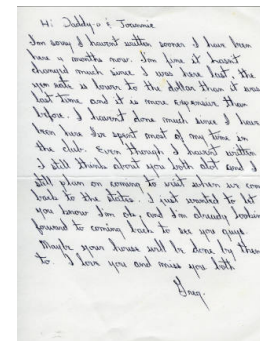 Hi Daddy-o & Joannie
I'm sorry I havent written sooner I have been
here 4 months now. I'm fine it hasnt
changed much since I was here last, the
yen rate is lower to the dollar than it was
last time and it is more expensive than
before. I havent done much since I have
been here I've spent most of my time in
the club. Even though I havent written
I still think about you both alot and I
still plan on coming to visit when we come
back to the states. I just wanted to let
you know I'm ok, and I'm already looking
forward to coming back to see you guys.
Maybe your house will be done by then
to. I love you and miss you both
Greg.